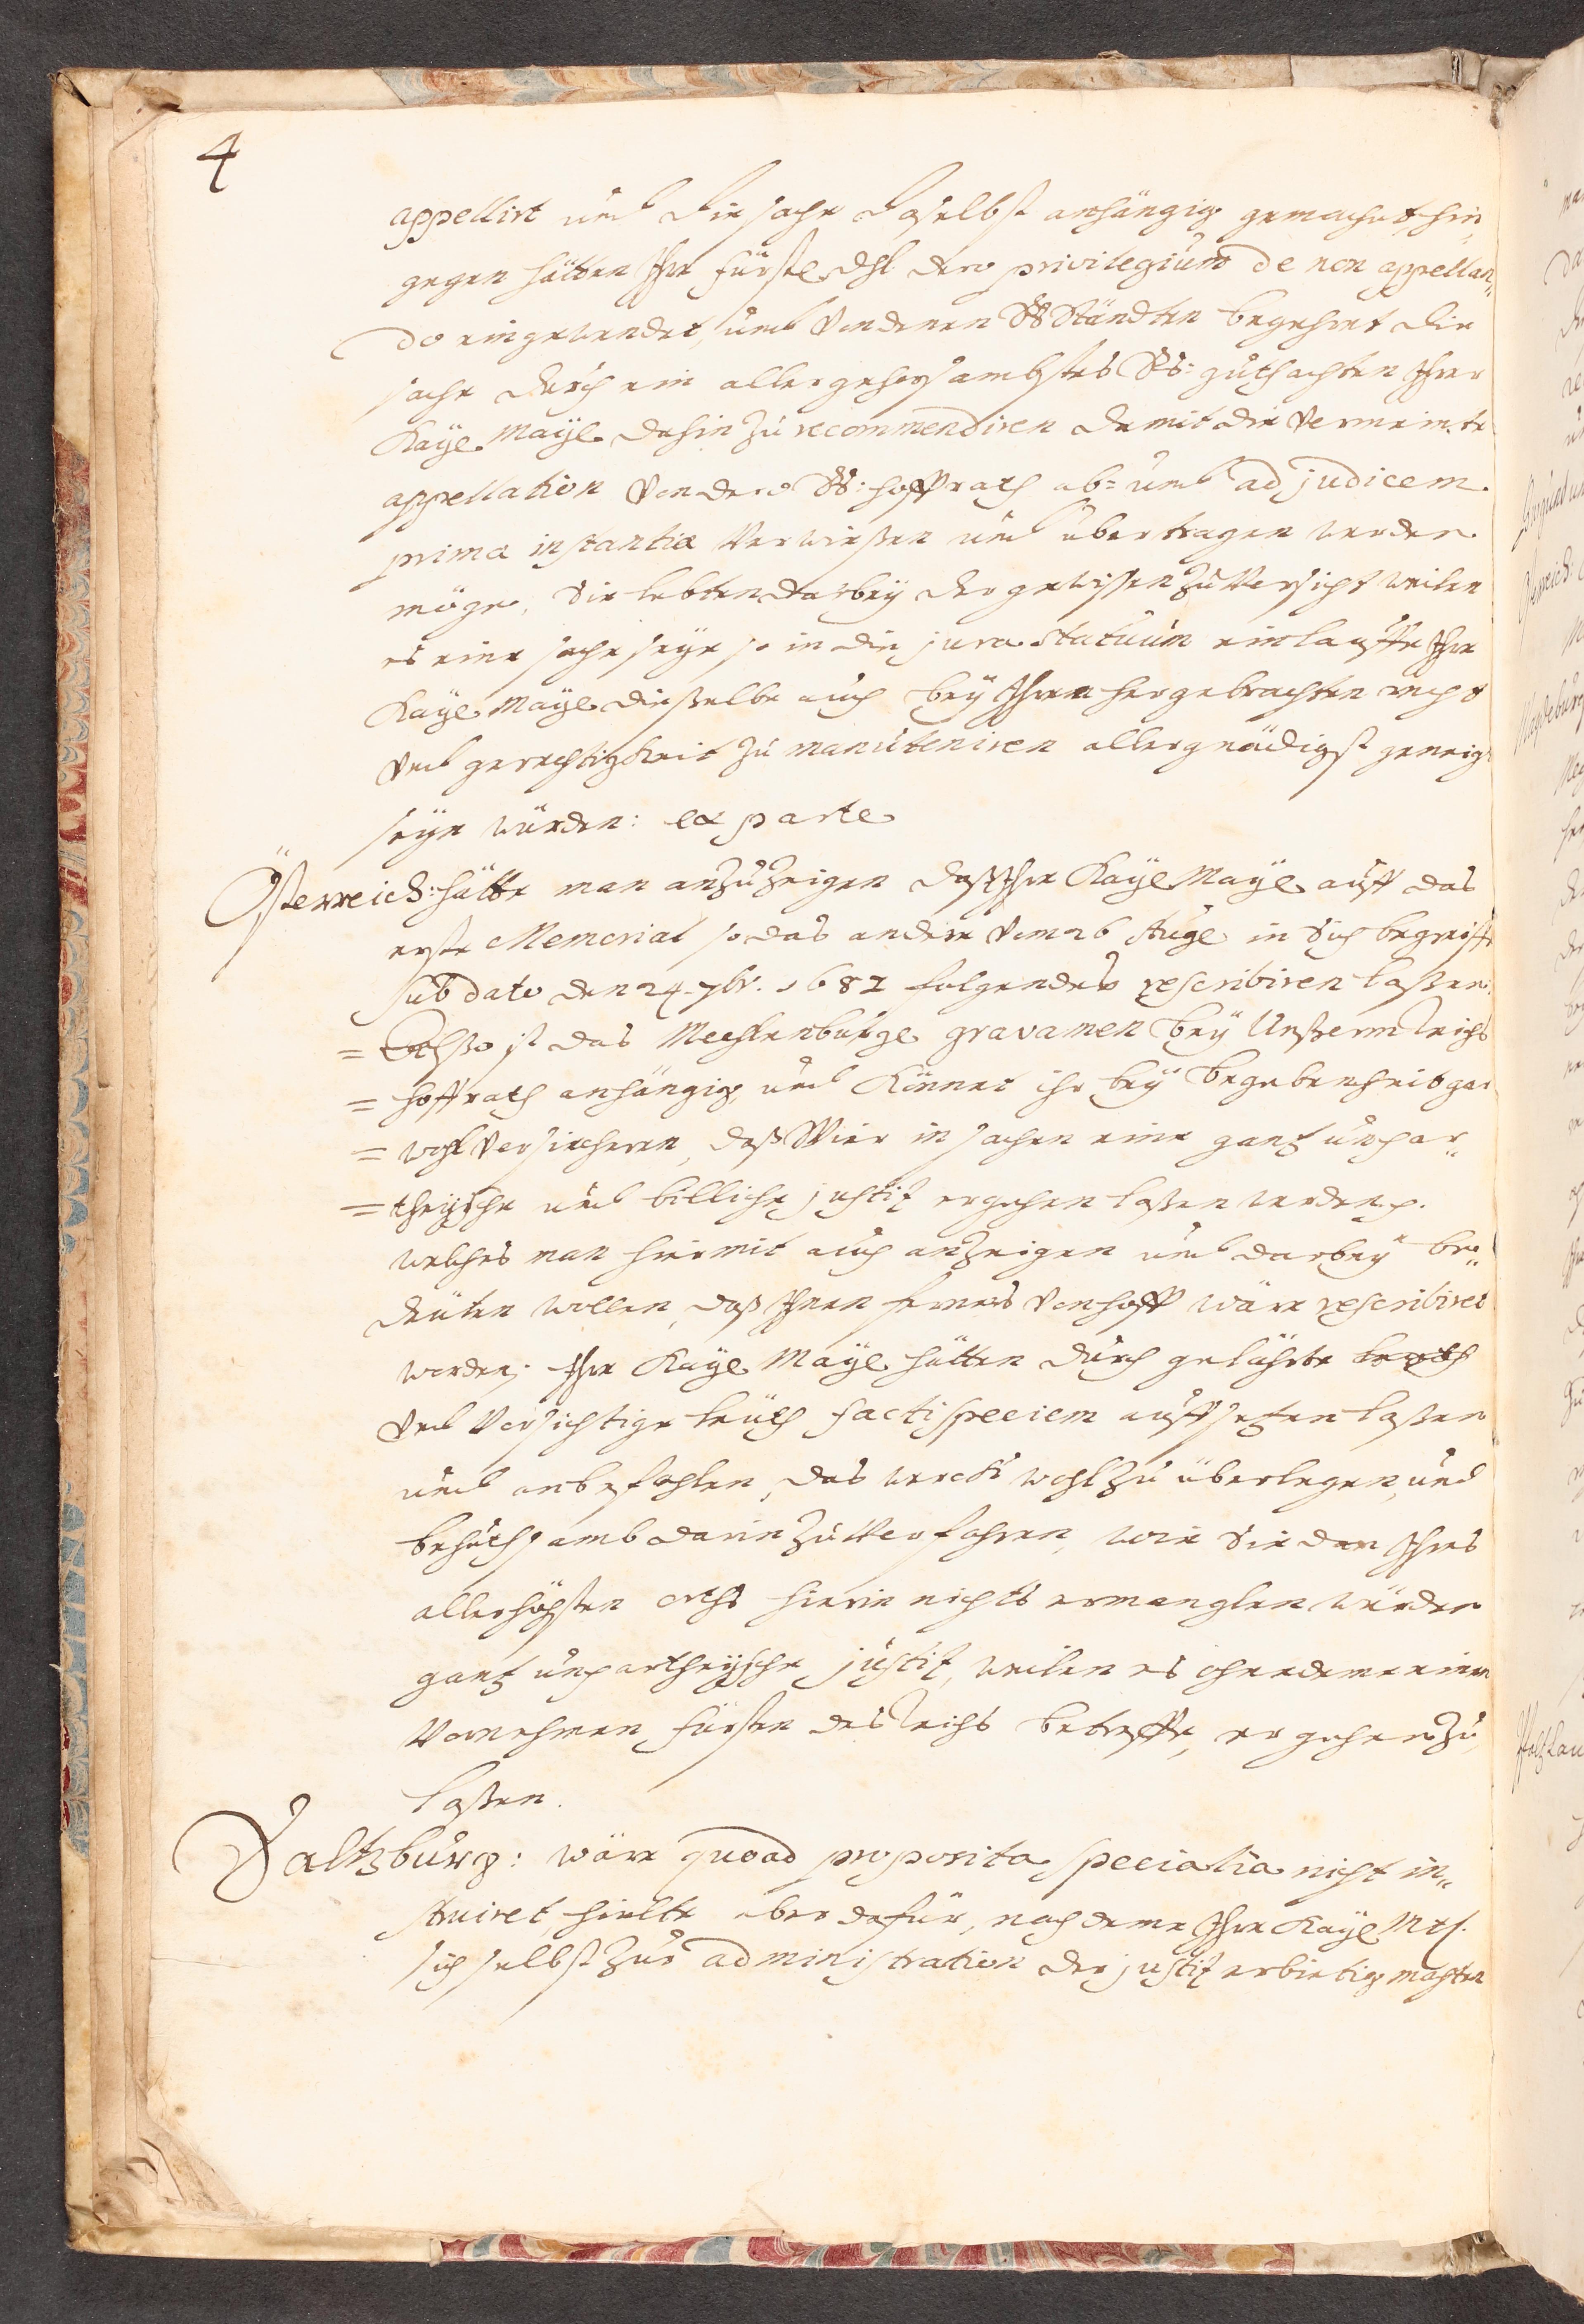 4
appellirt und die sache daselbst anhängig gemachet hin„
gegen hätten Ihre fürstl. dhl. dero privilegium de non appellan„
do eingewendet, und von denen Rs Ständten begehret die
sache durch ein allergehorsambstes Rs: guthachten Ihrer
Kayl. Mayl. dahin zu recommendiren damit die vermeinte
appellation von dero Rs: hoffrath ab= und ad judicem
primæ instantiæ verwießen und übertragen werden
möge, Sie lebten darbey der gewissen zuversicht weilen
es eine sache seye so in die jura statuum einlauffe Ihre
Kayl. Mayl. dieselbe auch bey Ihren hergebrachten recht
und gerechtigkeit zu manuteniren allergnädigst geneigt
seyn würden: ex parte
Österreich: hätte man anzuzeigen daß Ihre Kayl. Mayl. auff das
erste Memorial so das andere vom 26 Aug. in sich begreiffe
sub dato den 24. 7br. 1681 folgendes rescribiren laßen.
= Alßo ist das Mechlenburg. gravamen bey Unßerm Reichs
= hoffrath anhängig, und könnet ihr bey begebenheit gar
= wohl versicheren, daß Wier in sachen eine gantz unpar„
= theyische und billiche justitz ergehen laßen werden p.
welches man hiermit auch anzeigen und darbey be„
deuten wollen, daß Ihnen ferners von hoff wäre rescribiret
worden, Ihre Kayl. Mayl. hätten durch gelährte
und vorsichtige leuth facti speciem auffsetzen laßen
und anbefohlen, das werck wohl zu überlegen, und
behuthsamb darin zu verfahren, wie Sie dan Ihres
allerhöchsten orths hierin nichts ermanglen würden
gantz unpartheyische justitz, weilen es ohne deme einen
vornehmen fürsten des Reichs betreffe, ergehen zu
laßen.
Saltzburg: wäre quoad proposita specialia nicht in„
struiret, hielte aber dafür, nach deme Ihre Kayl. Mtt.
sich selbst zur administration der justitz erbietig machten